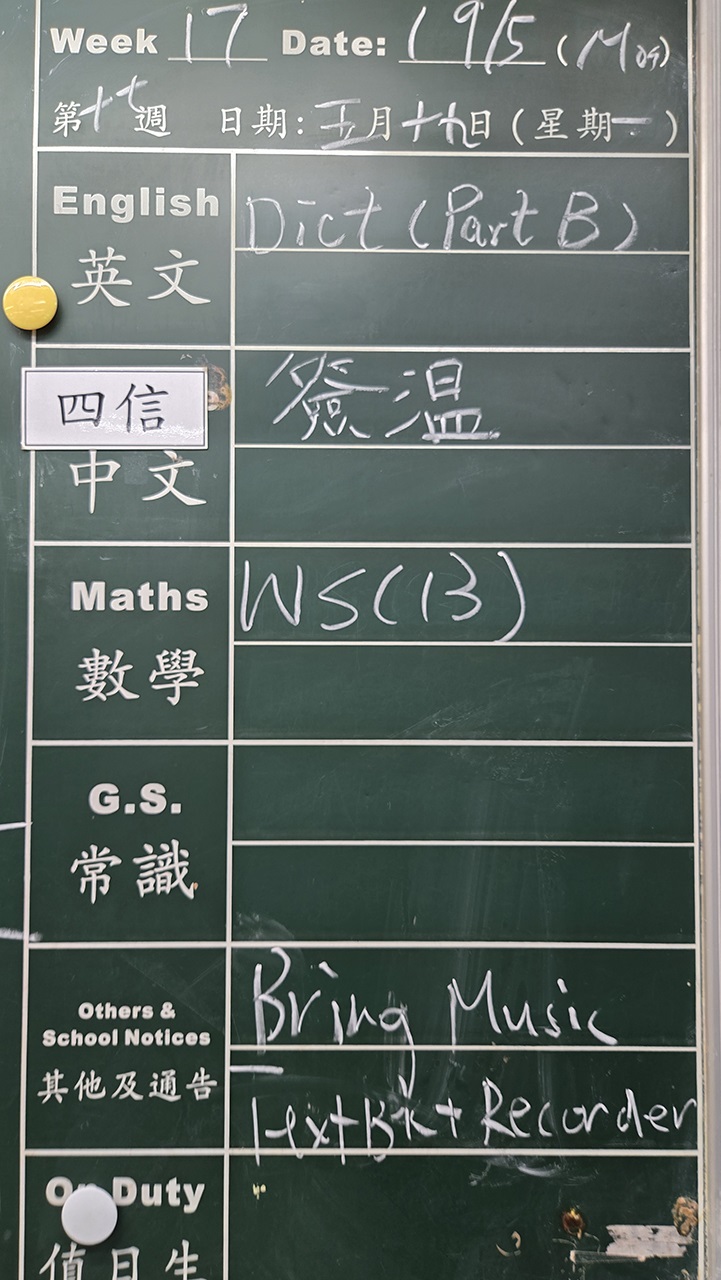 Week 17 Date: 19/5 (Mon)
第十七週 日期：五月十九日（星期一）
English Dict (Part B)
英文
四信 簽溫
中文
Maths WS(13)
數學
G.S.
常識
Others & Bring Music
School Notices
其他及通告 Text Bk + Recorder
On Duty
值日生